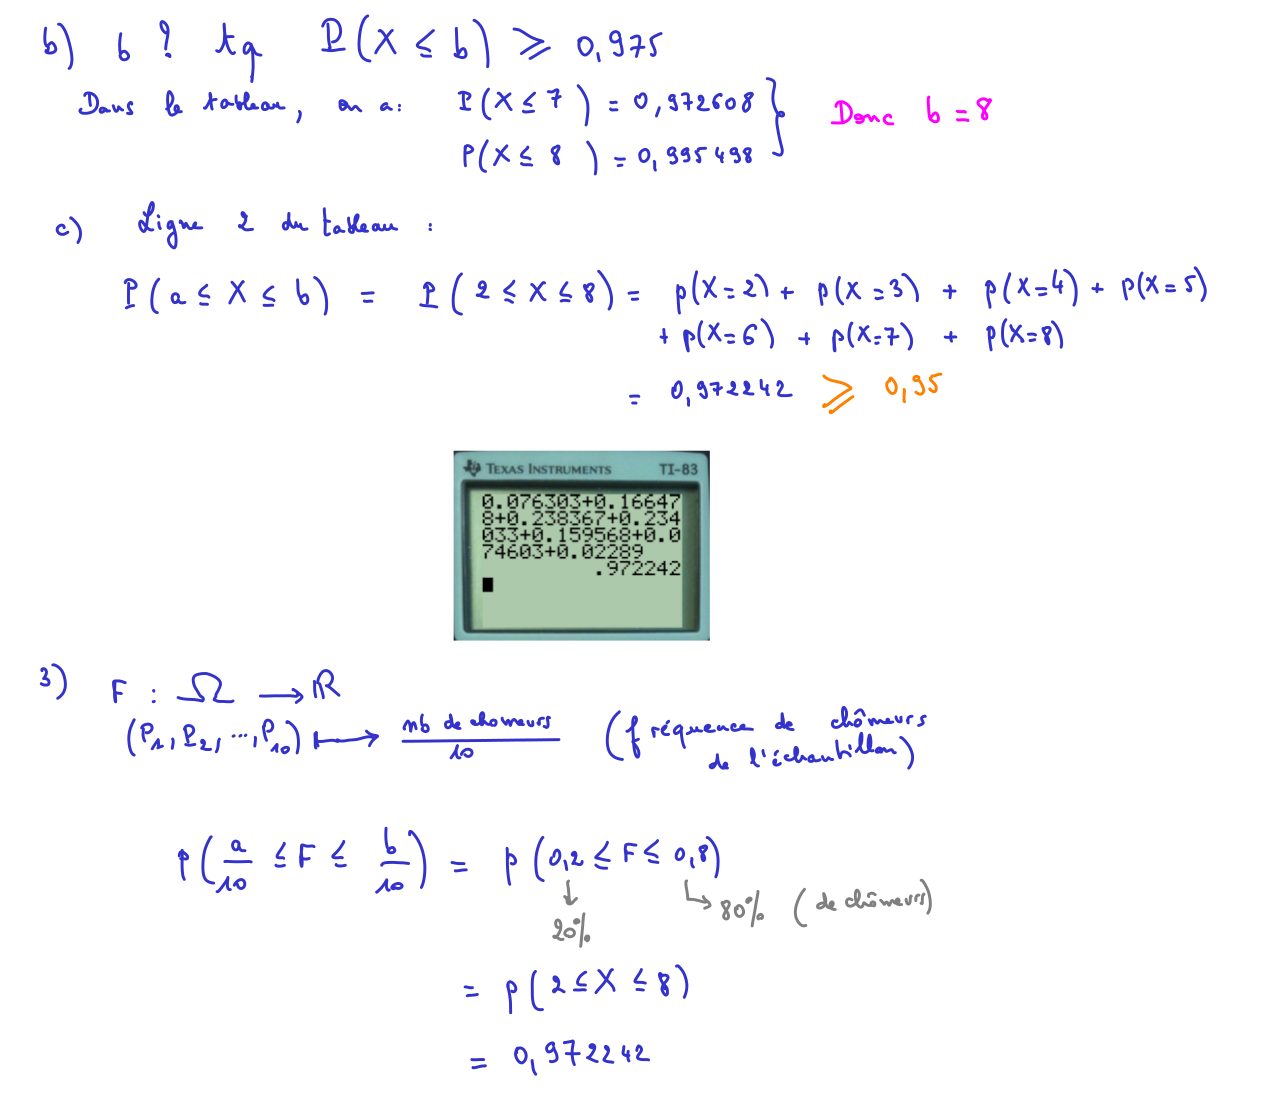 b) b ? tq P(X ≤ b) ≥ 0,975
Dans le tableau, on a : P(X ≤ 7) = 0,972608
P(X ≤ 8) = 0,995498
Donc b = 8
c) Ligne 2 du tableau :
P(a ≤ X ≤ b) = P(2 ≤ X ≤ 8) = p(X=2) + p(X=3) + p(X=4) + p(X=5)
+ p(X=6) + p(X=7) + p(X=8)
= 0,972242 ≥ 0,95
TEXAS INSTRUMENTS TI-83
0.076303+0.16647
8+0.238367+0.234
033+0.159568+0.0
74603+0.02289
.972242
3) F : Ω → ℝ
(P1, P2, ..., P10) ↦ nb de chomeurs / 10 (fréquence de chômeurs
de l'échantillon)
P(a/10 ≤ F ≤ b/10) = p(0,2 ≤ F ≤ 0,8)
↓ 20% ↳ 80% (de chômeurs)
= p(2 ≤ X ≤ 8)
= 0,972242